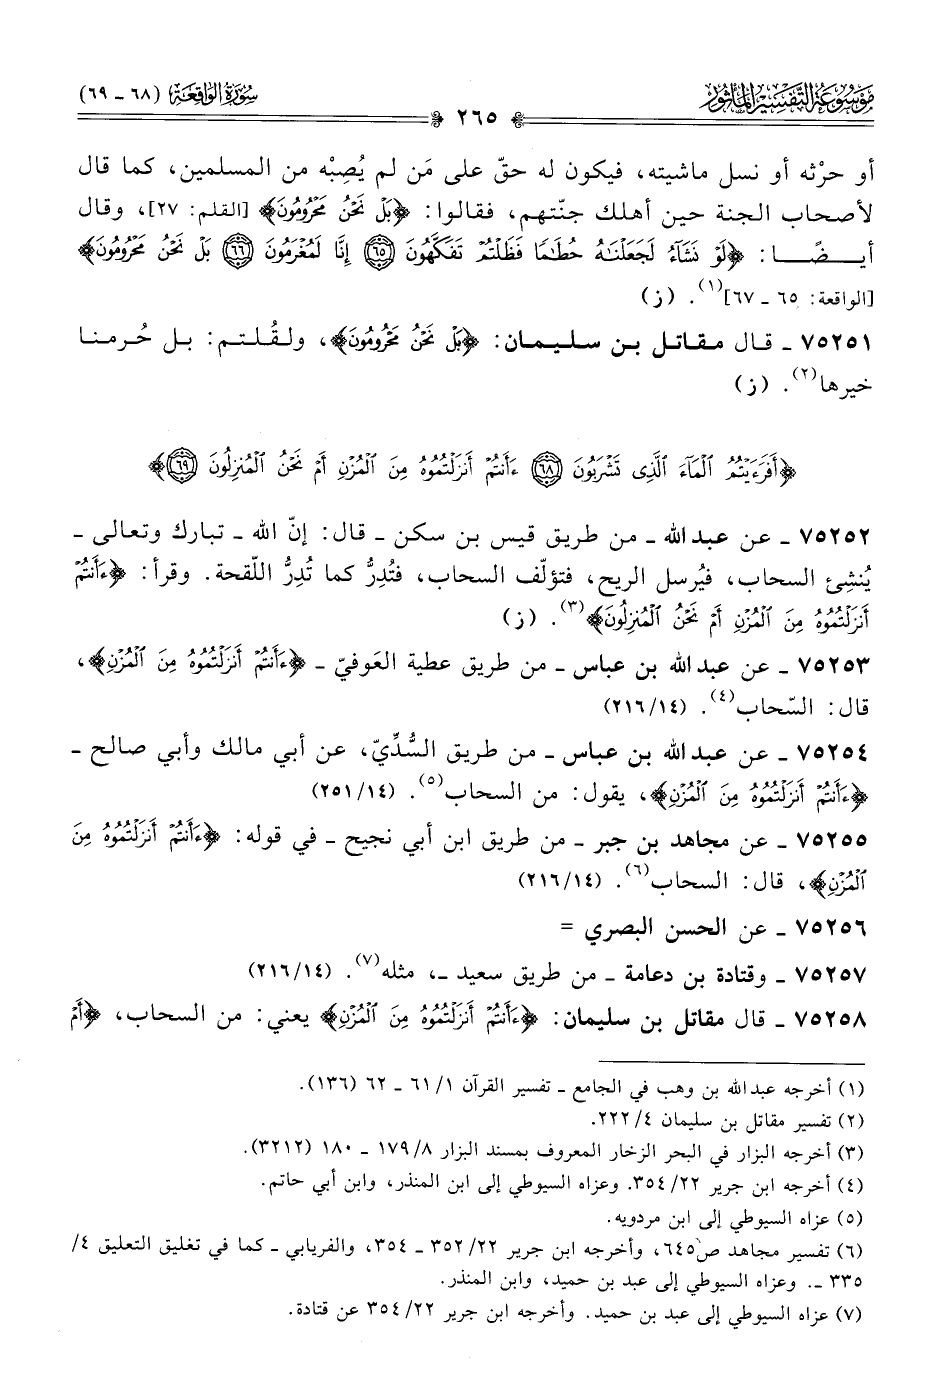 مَوْسُوعَة التَّفْسِير المَأْثُور
٢٦٥
سُورَةُ الوَاقِعَة (٦٨ - ٦٩)
أو حرْثه أو نسل ماشيته، فيكون له حقّ على مَن لم يُصِبْه من المسلمين، كما قال
لأصحاب الجنة حين أهلك جنّتهم، فقالوا: ﴿بَلْ نَحْنُ مَحْرُومُونَ﴾ [القلم: ٢٧]، وقال
أيـضًـا: ﴿لَوْ نَشَآءُ لَجَعَلْنَٰهُ حُطَٰمًا فَظَلْتُمْ تَفَكَّهُونَ ٦٥ إِنَّا لَمُغْرَمُونَ ٦٦ بَلْ نَحْنُ مَحْرُومُونَ﴾
[الواقعة: ٦٥ - ٦٧]<sup>(١)</sup>. (ز)
٧٥٢٥١ - قال مقاتل بن سليمان: ﴿بَلْ نَحْنُ مَحْرُومُونَ﴾، ولقُلـتـم: بـل حُرمنا
خيرها<sup>(٢)</sup>. (ز)
﴿أَفَرَءَيْتُمُ ٱلْمَآءَ ٱلَّذِى تَشْرَبُونَ ٦٨ ءَأَنتُمْ أَنزَلْتُمُوهُ مِنَ ٱلْمُزْنِ أَمْ نَحْنُ ٱلْمُنزِلُونَ ٦٩﴾
٧٥٢٥٢ - عن عبد الله - من طريق قيس بن سكن - قال: إنّ الله - تبارك وتعالى -
يُنشِئ السحاب، فيُرسل الريح، فتؤلّف السحاب، فتُدِرُّ كما تُدِرُّ اللّقحة. وقرأ: ﴿ءَأَنتُمْ
أَنزَلْتُمُوهُ مِنَ ٱلْمُزْنِ أَمْ نَحْنُ ٱلْمُنزِلُونَ﴾<sup>(٣)</sup>. (ز)
٧٥٢٥٣ - عن عبد الله بن عباس - من طريق عطية العَوفيّ - ﴿ءَأَنتُمْ أَنزَلْتُمُوهُ مِنَ ٱلْمُزْنِ﴾،
قال: السّحاب<sup>(٤)</sup>. (٢١٦/١٤)
٧٥٢٥٤ - عن عبد الله بن عباس - من طريق السُّدِّيّ، عن أبي مالك وأبي صالح -
﴿ءَأَنتُمْ أَنزَلْتُمُوهُ مِنَ ٱلْمُزْنِ﴾، يقول: من السحاب<sup>(٥)</sup>. (٢٥١/١٤)
٧٥٢٥٥ - عن مجاهد بن جبر - من طريق ابن أبي نجيح - في قوله: ﴿ءَأَنتُمْ أَنزَلْتُمُوهُ مِنَ
ٱلْمُزْنِ﴾، قال: السحاب<sup>(٦)</sup>. (٢١٦/١٤)
٧٥٢٥٦ - عن الحسن البصري =
٧٥٢٥٧ - وقتادة بن دعامة - من طريق سعيد -، مثله<sup>(٧)</sup>. (٢١٦/١٤)
٧٥٢٥٨ - قال مقاتل بن سليمان: ﴿ءَأَنتُمْ أَنزَلْتُمُوهُ مِنَ ٱلْمُزْنِ﴾ يعني: من السحاب، ﴿أَمْ
(١) أخرجه عبد الله بن وهب في الجامع - تفسير القرآن ٦١/١ - ٦٢ (١٣٦).
(٢) تفسير مقاتل بن سليمان ٢٢٢/٤.
(٣) أخرجه البزار في البحر الزخار المعروف بمسند البزار ١٧٩/٨ - ١٨٠ (٣٢١٢).
(٤) أخرجه ابن جرير ٣٥٤/٢٢. وعزاه السيوطي إلى ابن المنذر، وابن أبي حاتم.
(٥) عزاه السيوطي إلى ابن مردويه.
(٦) تفسير مجاهد ص٦٤٥، وأخرجه ابن جرير ٣٥٢/٢٢ - ٣٥٤، والفريابي - كما في تغليق التعليق ٤/
٣٣٥ -. وعزاه السيوطي إلى عبد بن حميد، وابن المنذر.
(٧) عزاه السيوطي إلى عبد بن حميد. وأخرجه ابن جرير ٣٥٤/٢٢ عن قتادة.